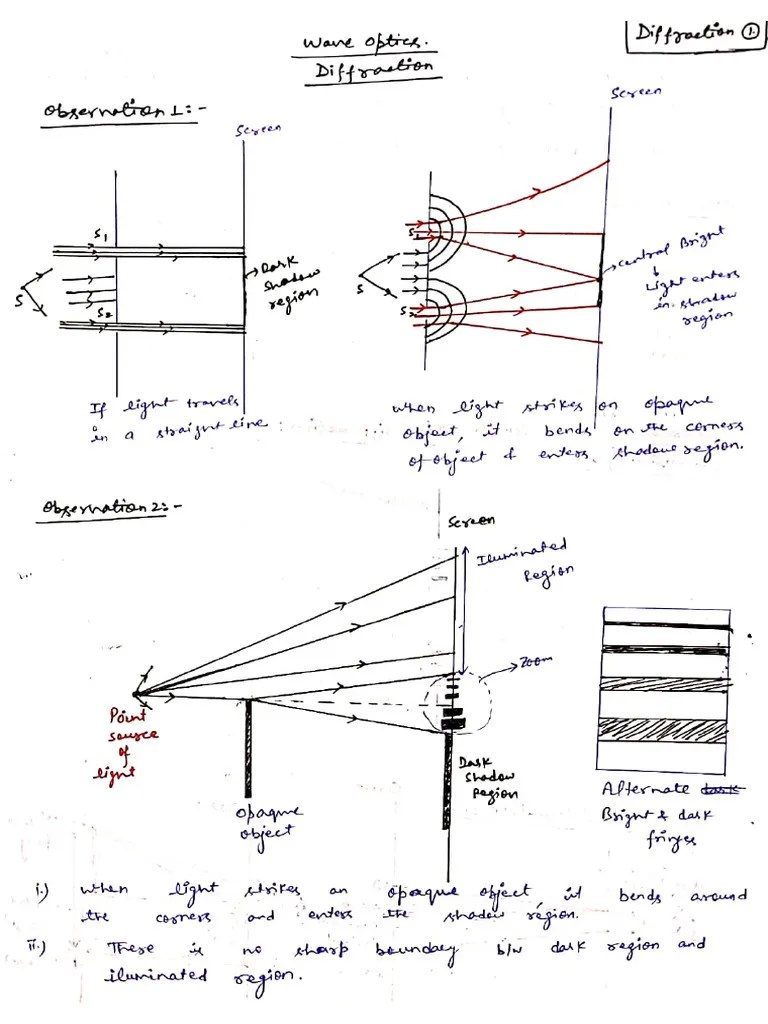 Diffraction ①
Wave Optics.
Diffraction
Observation 1:-
Screen
S1
S
S2
Dark
shadow
region
If light travels
in a straight line
Screen
S1
S
S2
Central Bright
Light enters
in shadow
region
When light strikes on opaque
object, it bends on the corners
of object & enters shadow region.
Observation 2:-
Screen
Illuminated
Region
Zoom
Point
source
of
light
Opaque
object
Dark
Shadow
Region
Alternate dark
Bright & dark
fringes
i.) When light strikes an opaque object it bends around
the corners and enters the shadow region.
ii.) There is no sharp boundary b/w dark region and
illuminated region.